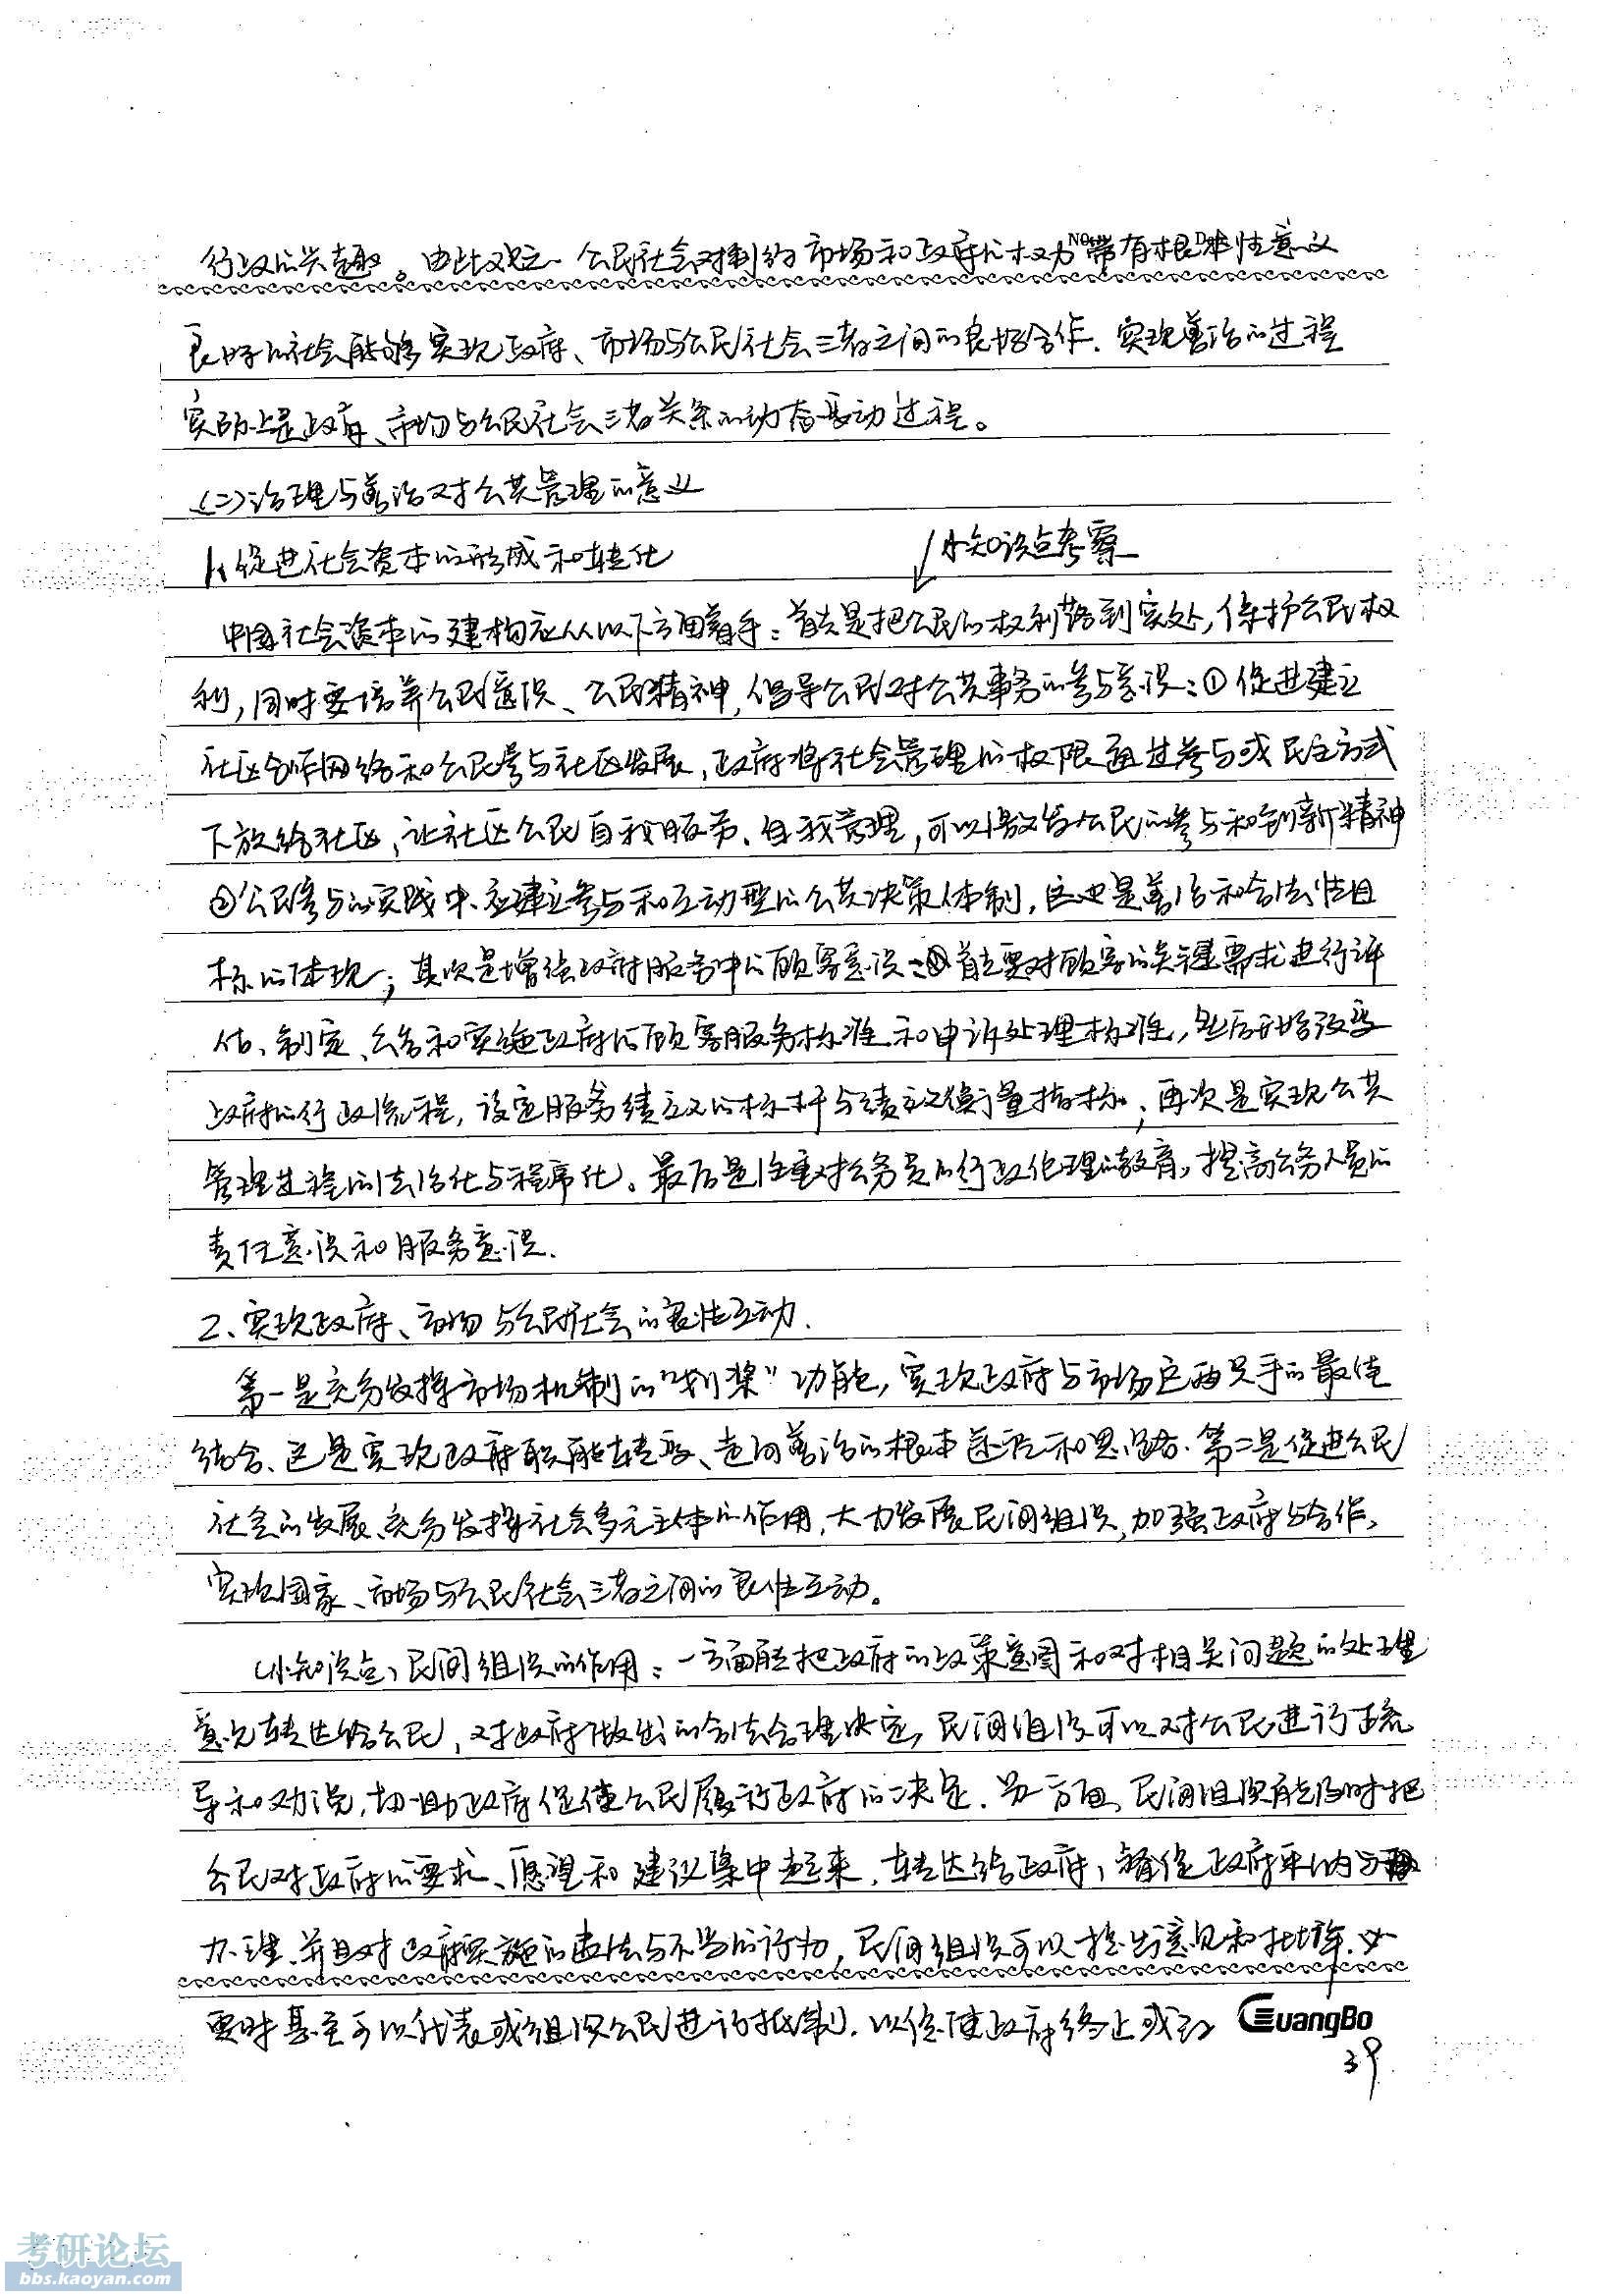 行政的兴趣。由此观之,公民社会对制约市场和政府的权力带有根本性意义
No.
D
良好的社会能够实现政府、市场与公民社会三者之间的良好合作.实现善治的过程
实际上是政府、市场与公民社会三者关系的动态变动过程。
(二)治理与善治对公共管理的意义
1、促进社会资本的形成和转化
小知识点考察
中国社会资本的建构应从以下方面着手:首先是把公民的权利落到实处,保护公民权
利,同时要培养公民意识、公民精神,倡导公民对公共事务的参与意识:①促进建立
社区合作网络和公民参与社区发展,政府将社会管理的权限通过参与或民主方式
下放给社区,让社区公民自我服务、自我管理,可以激发公民的参与和创新精神
②公民参与的实践中,应建立参与和互动型的公共决策体制,这也是善治和合法性目
标的体现;其次是增强政府服务中的顾客意识:首先要对顾客的关键需求进行评
估、制定、公告和实施政府的顾客服务标准和申诉处理标准,然后开始改变
政府的行政流程,设定服务绩效的标杆与绩效衡量指标;再次是实现公共
管理过程的法治化与程序化。最后是注重对公务员的行政伦理的教育,提高公务人员的
责任意识和服务意识.
2、实现政府、市场与公民社会的良性互动.
第一是充分发挥市场机制的"划桨"功能,实现政府与市场这两只手的最佳
结合、这是实现政府职能转变、走向善治的根本途径和思路.第二是促进公民
社会的发展、充分发挥社会多元主体的作用,大力发展民间组织,加强政府与合作,
实现国家、市场与公民社会三者之间的良性互动。
小知识点、民间组织的作用:一方面能把政府的政策意图和对相关问题的处理
意见转达给公民,对政府做出的合法合理决定,民间组织可以对公民进行疏
导和劝说,协助政府促使公民履行政府的决定.另一方面,民间组织能及时把
公民对政府的要求、愿望和建议集中起来,转达给政府,督促政府采纳
办理、并且对政府实施的违法与不当的行为,民间组织可以提出意见和批评.必
要时甚至可以代表或组织公民进行抵制.以促使政府终止或
GuangBo
39
考研论坛
bbs.kaoyan.com